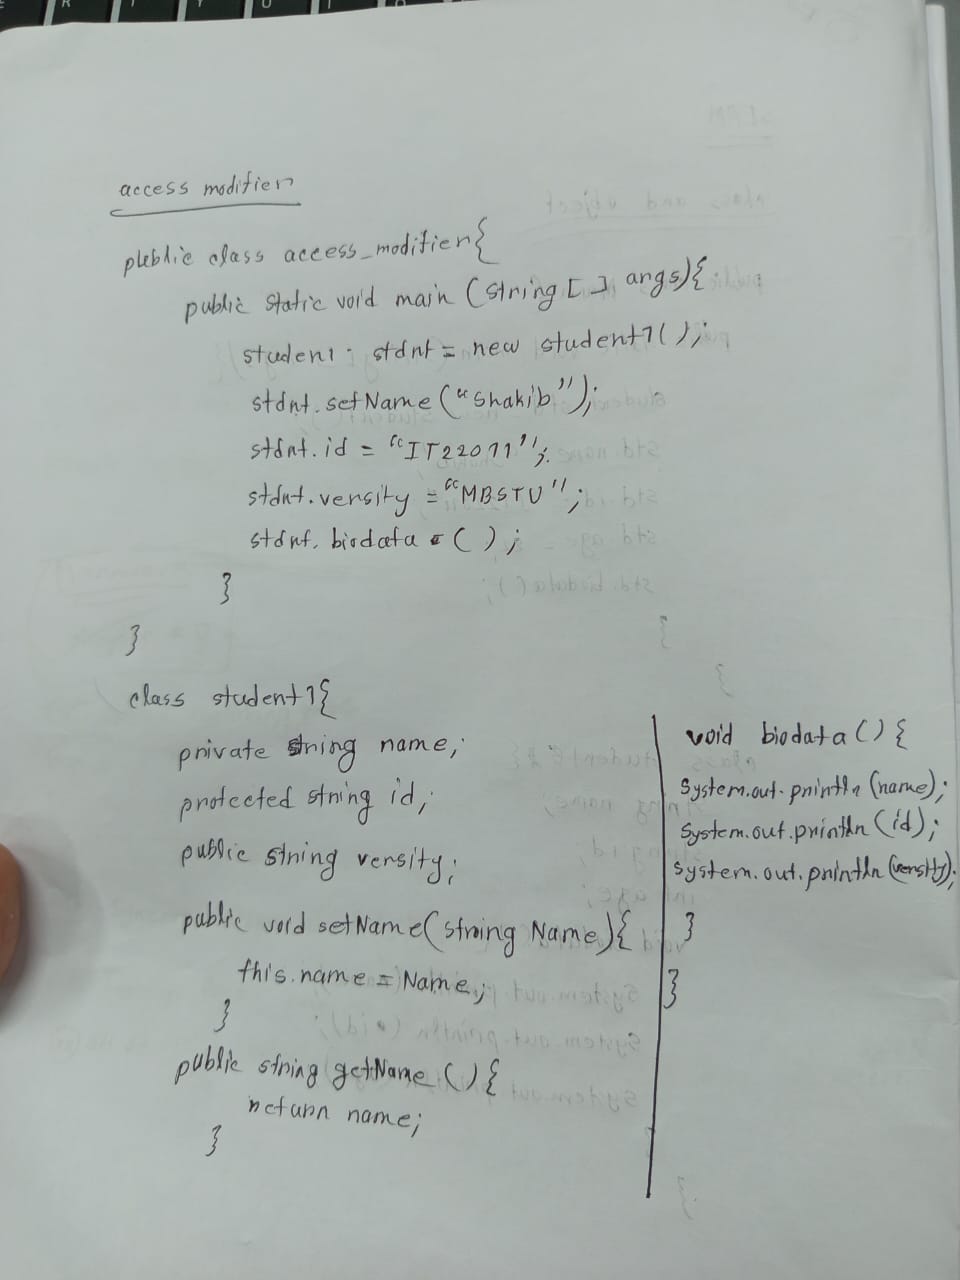 access modifier
public class access_modifier{
public static void main (string [ ] args){
student1 stdnt = new student1();
stdnt.setName ("Shakib");
stdnt.id = "IT22011";
stdnt.versity = "MBSTU";
stdnt. biodata ( );
}
}
class student1{
private string name;
protected string id;
public string versity;
public void setName(string Name){
this.name = Name;
}
public string getName (){
return name;
}
void biodata(){
System.out.println (name);
System.out.println (id);
System.out.println (versity);
}
}